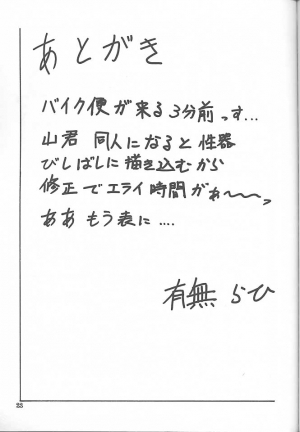 あとがき
バイク便が来る3分前っす...
山君 同人になると性器
びしばしに描き込むから
修正でエライ時間がぁ〜〜っ
ああ もう表に....
有無 らひ
23